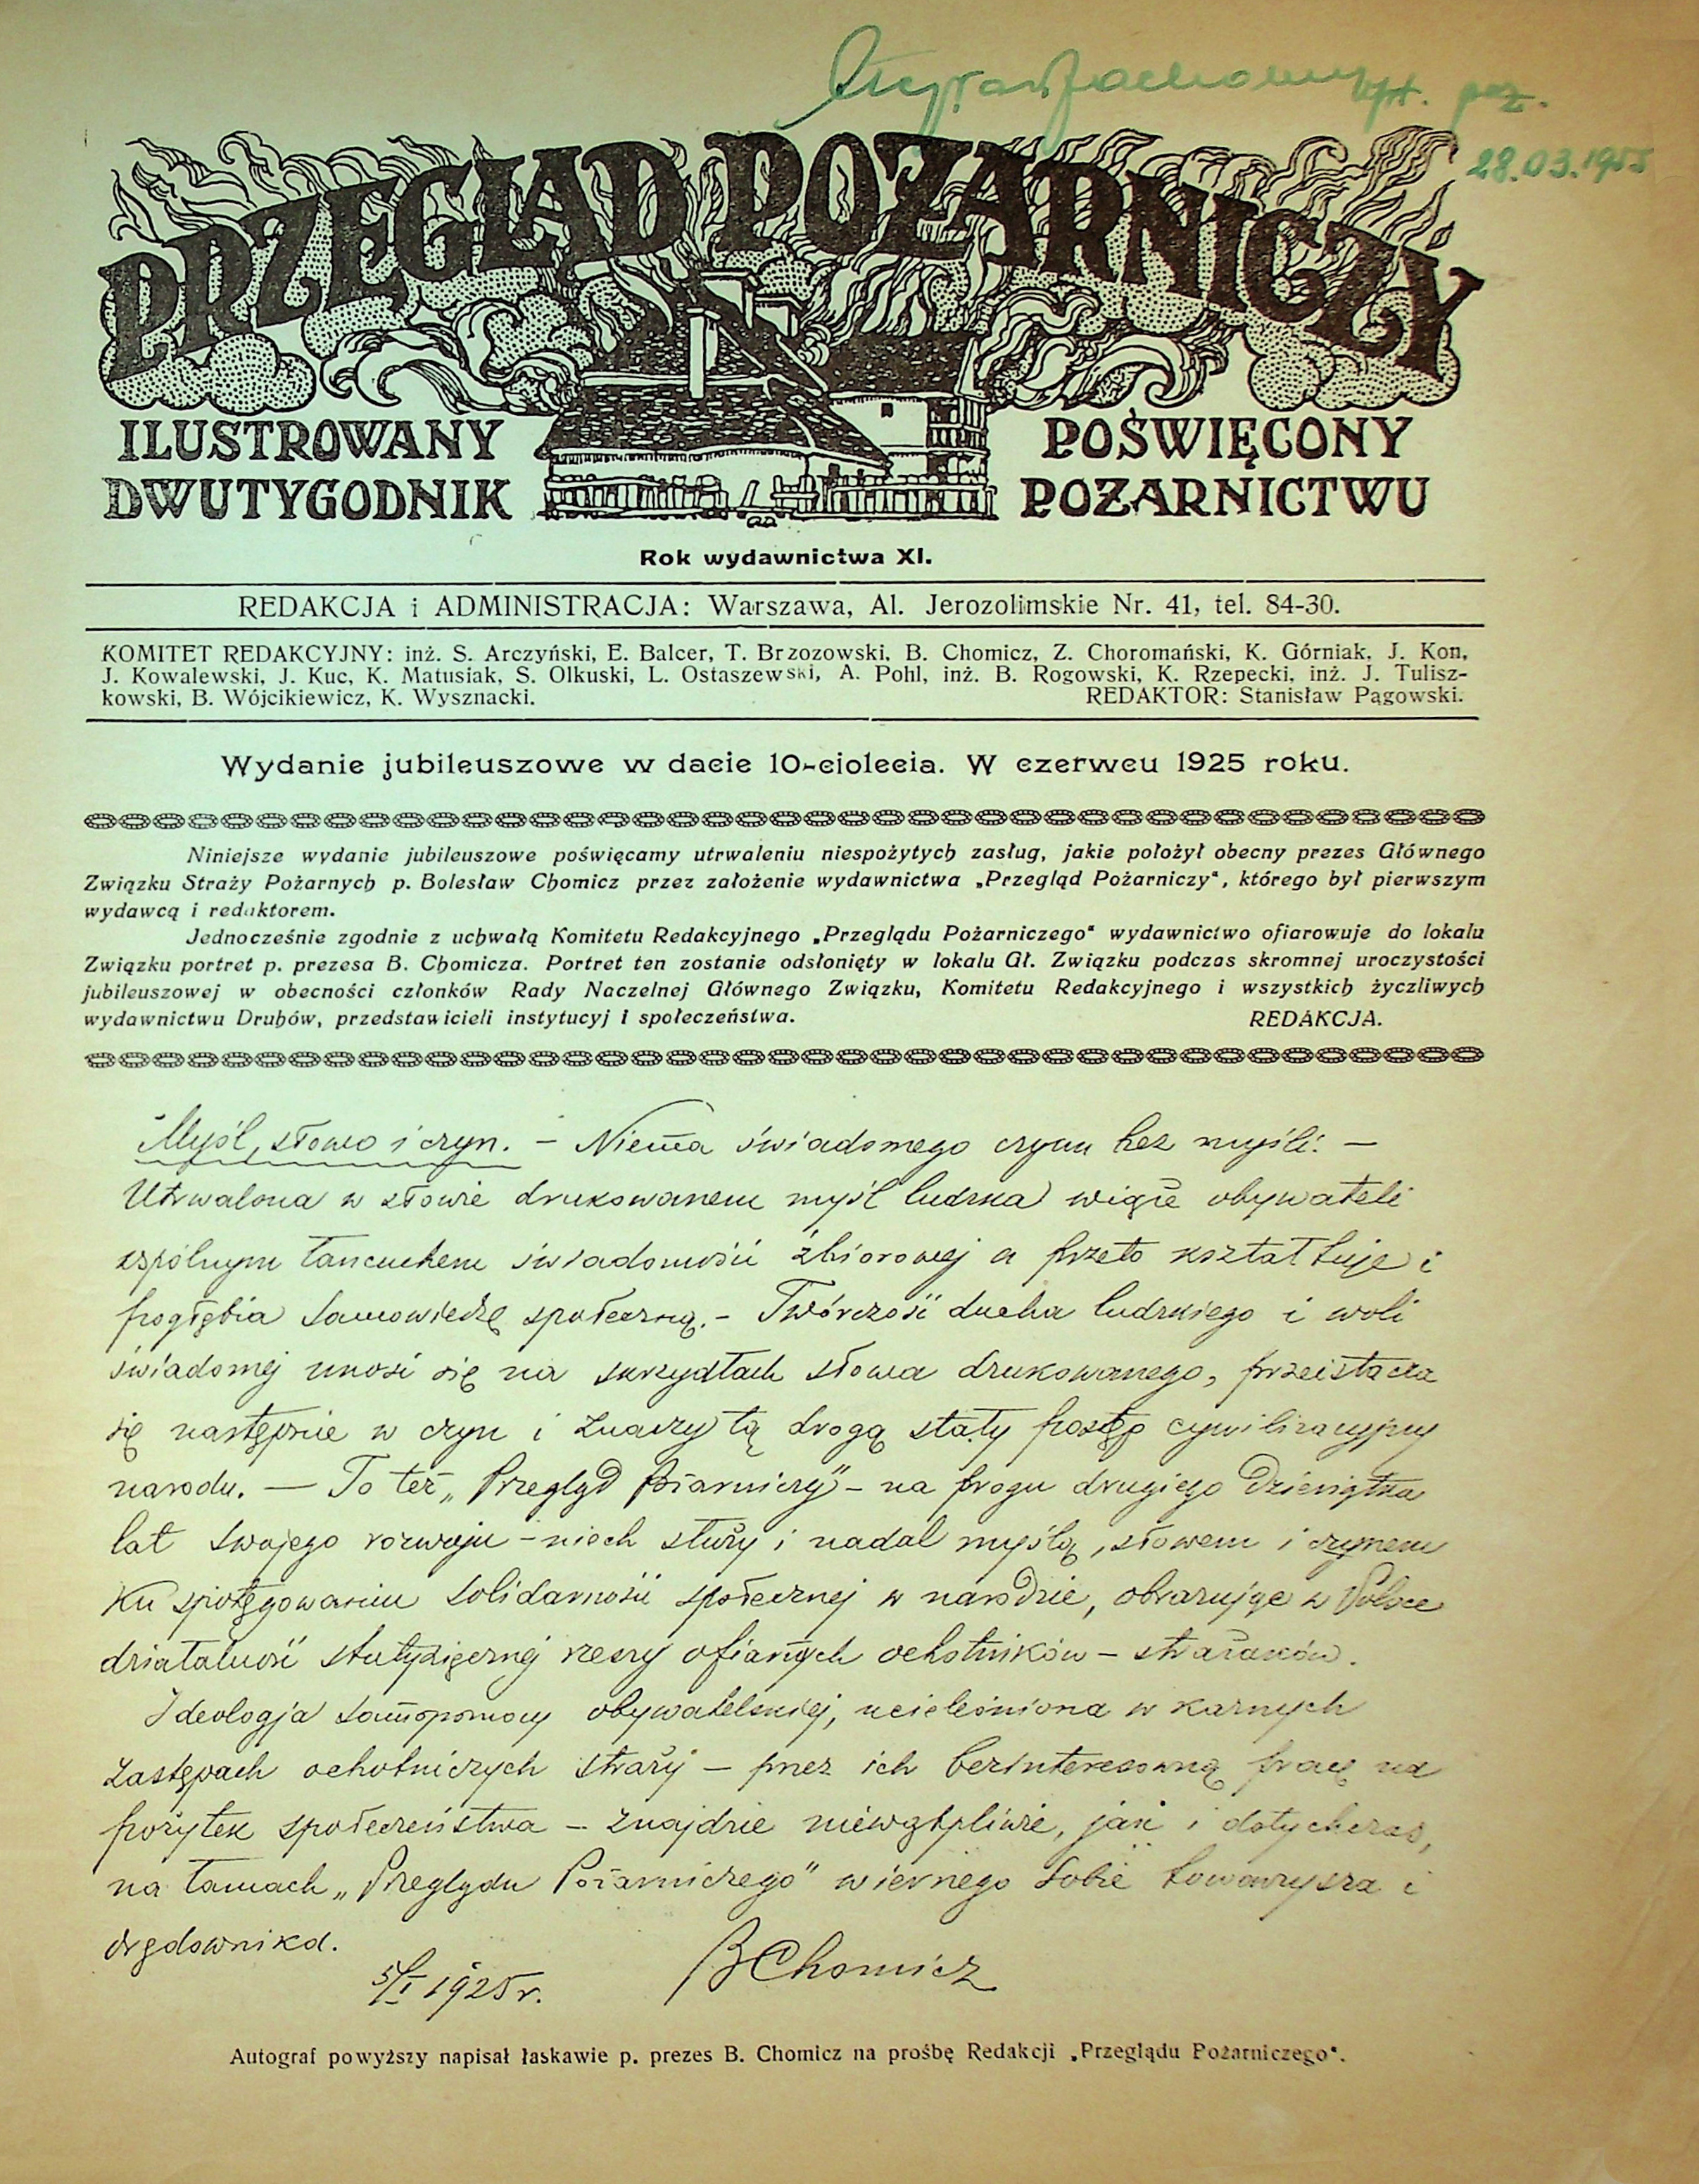 kpt. poż.
28.03.1955
PRZEGLĄD POŻARNICZY
ILUSTROWANY
DWUTYGODNIK
POŚWIĘCONY
POŻARNICTWU
Rok wydawnictwa XI.
REDAKCJA i ADMINISTRACJA: Warszawa, Al. Jerozolimskie Nr. 41, tel. 84-30.
KOMITET REDAKCYJNY: inż. S. Arczyński, E. Balcer, T. Brzozowski, B. Chomicz, Z. Choromański, K. Górniak, J. Kon,
J. Kowalewski, J. Kuc, K. Matusiak, S. Olkuski, L. Ostaszewski, A. Pohl, inż. B. Rogowski, K. Rzepecki, inż. J. Tulisz-
kowski, B. Wójcikiewicz, K. Wysznacki. REDAKTOR: Stanisław Pągowski.
Wydanie jubileuszowe w dacie 10-ciolecia. W czerwcu 1925 roku.
Niniejsze wydanie jubileuszowe poświęcamy utrwaleniu niespożytych zasług, jakie położył obecny prezes Głównego
Związku Straży Pożarnych p. Bolesław Chomicz przez założenie wydawnictwa „Przegląd Pożarniczy", którego był pierwszym
wydawcą i redaktorem.
Jednocześnie zgodnie z uchwałą Komitetu Redakcyjnego „Przeglądu Pożarniczego" wydawnictwo ofiarowuje do lokalu
Związku portret p. prezesa B. Chomicza. Portret ten zostanie odsłonięty w lokalu Gł. Związku podczas skromnej uroczystości
jubileuszowej w obecności członków Rady Naczelnej Głównego Związku, Komitetu Redakcyjnego i wszystkich życzliwych
wydawnictwu Druhów, przedstawicieli instytucyj i społeczeństwa. REDAKCJA.
Myśl, słowo i czyn. – Niema świadomego czynu bez myśli. –
Utrwalona w słowie drukowanem myśl ludzka wiąże obywateli
wspólnym łańcuchem świadomości zbiorowej a przeto kształtuje i
pogłębia samowiedzę społeczną. – Twórczość ducha ludzkiego i woli
świadomej unosi się na skrzydłach słowa drukowanego, przeistacza
się następnie w czyn i znaczy tą drogą stały postęp cywilizacyjny
narodu. — To też „Przegląd Pożarniczy" – na progu drugiego dziesiątka
lat swojego rozwoju – niech służy i nadal myślą, słowem i czynem
ku spotęgowaniu solidarności społecznej w narodzie, obrazując w Polsce
działalność stutysięcznej rzeszy ofiarnych ochotników – strażaków.
Ideologja samopomocy obywatelskiej, ucieleśniona w karnych
zastępach ochotniczych straży – przez ich bezinteresowną pracę na
pożytek społeczeństwa – znajdzie niewątpliwie, jak i dotychczas,
na łamach „Przeglądu Pożarniczego" wiernego sobie towarzysza i
orędownika.
5/I 1925 r. BChomicz
Autograf powyższy napisał łaskawie p. prezes B. Chomicz na prośbę Redakcji „Przeglądu Pożarniczego".